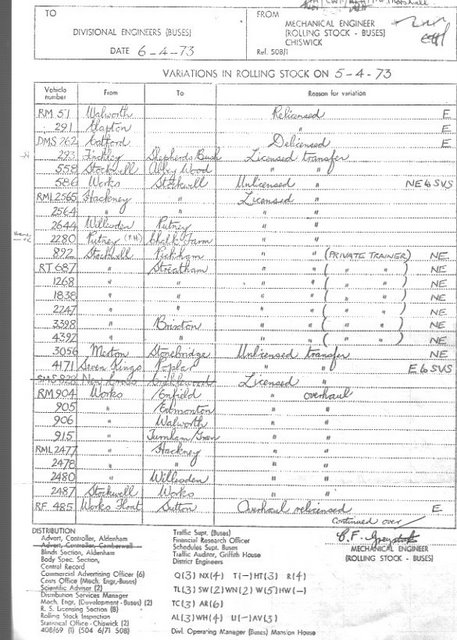 TO
DIVISIONAL ENGINEERS (BUSES)
DATE 6-4-73
FROM
MECHANICAL ENGINEER
(ROLLING STOCK - BUSES)
CHISWICK
Ref. 508/1
VARIATIONS IN ROLLING STOCK ON 5-4-73
Vehicle number From To Reason for variation
RM 51 Walworth Relicensed E
" 291 Clapton " E
DMS 262 Catford Delicensed E
" 293 Finchley Shepherds Bush Licensed transfer
" 558 Stockwell Abbey Wood " "
" 586 Works Stockwell Unlicensed " NE to SVS
RML 2565 Hackney " Licensed "
2564 " " " "
2644 Willesden Putney " "
2280 Putney Chalk Farm " "
892 Stockwell Peckham " " (PRIVATE TRAINER) NE
RT 687 " Streatham " " ( " " ) NE
1268 " " " " ( " " ) NE
1838 " " " " ( " " ) NE
2247 " " " " ( " " ) NE
3398 " Brixton " " ( " " ) NE
4392 " " " " ( " " ) NE
3056 Merton Stonebridge Unlicensed transfer NE
4171 Seven Kings Poplar " " E to SVS
SMS 828 Licensed "
RM 904 Works Enfield " overhaul
905 " Edmonton " "
906 " Walworth " "
915 " Turnham Green " "
RML 2477 " Hackney " "
2478 " " " "
2480 " Willesden " "
2487 Stockwell Works " "
RF 485 Works Float Sutton Overhaul relicensed E
Continued over
MECHANICAL ENGINEER
(ROLLING STOCK - BUSES)
DISTRIBUTION
Advert. Controller, Aldenham
Advert. Controller, Camberwell
Blinds Section, Aldenham
Body Spec. Section,
Central Record
Commercial Advertising Officer (6)
Costs Office (Mech. Engr.-Buses)
Scientific Adviser (2)
Distribution Services Manager
Mech. Engr. (Development - Buses) (2)
R. S. Licensing Section (8)
Rolling Stock Inspection
Statistical Office - Chiswick (2)
408/69 (1) (504 6/71 508)
Traffic Supt. (Buses)
Financial Research Officer
Schedules Supt. Buses
Traffic Auditor, Griffith House
District Engineers
Q(3) NX(4) T(-) HT(3) R(4)
TL(3) SW(2) WN(2) W(5) HW(-)
TC(3) AR(6)
AL(3) WH(4) U(-) AV(3)
Divl. Operating Manager (Buses) Mansion House